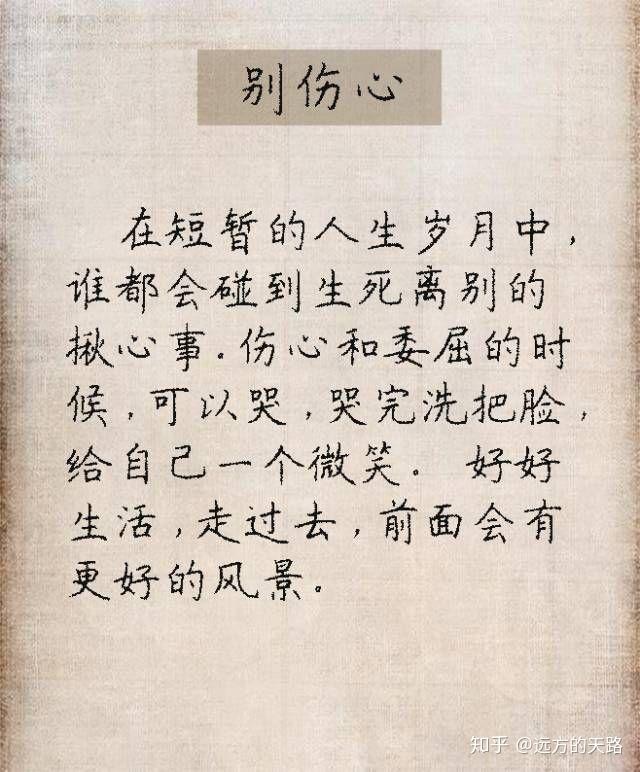 别伤心
在短暂的人生岁月中，
谁都会碰到生死离别的
揪心事。伤心和委屈的时
候，可以哭，哭完洗把脸，
给自己一个微笑。好好
生活，走过去，前面会有
更好的风景。
知乎 @远方的天路